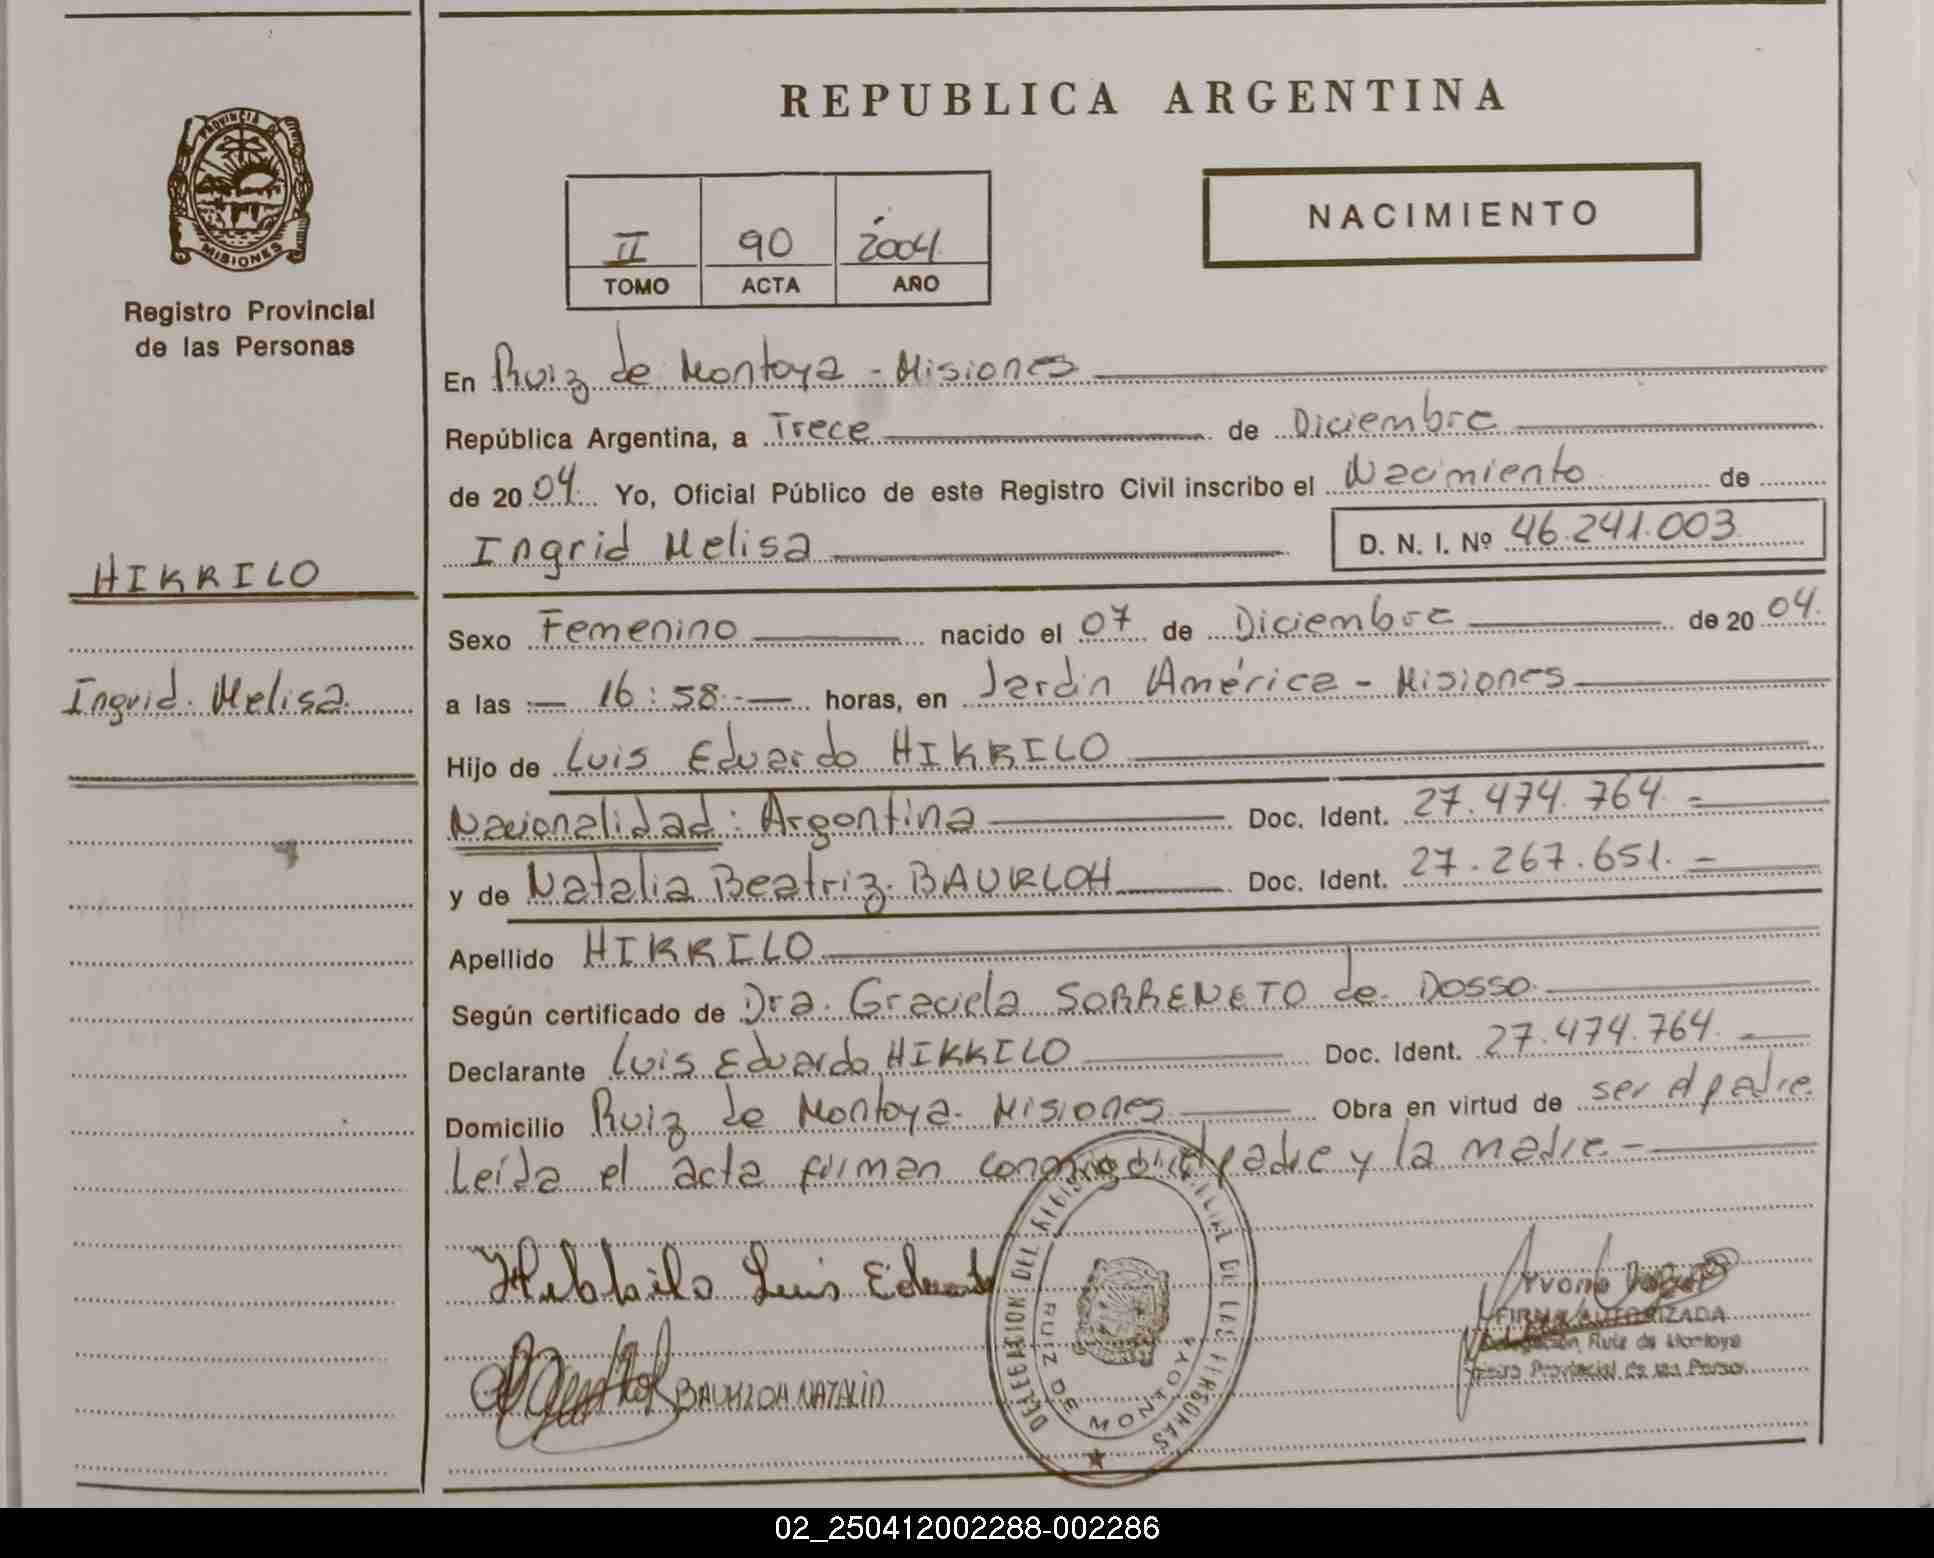 REPUBLICA ARGENTINA
PROVINCIA DE
MISIONES
Registro Provincial
de las Personas
II 90 2004
TOMO ACTA AÑO
NACIMIENTO
HIKRILO
Ingrid Melisa
En Ruiz de Montoya - Misiones
República Argentina, a Trece de Diciembre
de 2004. Yo, Oficial Público de este Registro Civil inscribo el Nacimiento de
Ingrid Melisa D. N. I. Nº 46.241.003
Sexo Femenino nacido el 07 de Diciembre de 2004.
a las — 16:58 — horas, en Jardín América - Misiones
Hijo de Luis Eduardo HIKRILO
Nacionalidad: Argentina Doc. Ident. 27.474.764. =
y de Natalia Beatriz BAURLOH Doc. Ident. 27.267.651. =
Apellido HIKRILO
Según certificado de Dra. Graciela SORRENETO de DOSSO
Declarante Luis Eduardo HIKRILO Doc. Ident. 27.474.764. —
Domicilio Ruiz de Montoya - Misiones Obra en virtud de ser el padre.
Leída el acta firman conmigo el padre y la madre. -
Luis Eduardo
NATALIA
DELEGACION DEL REGISTRO PROVINCIAL DE LAS PERSONAS
RUIZ DE MONTOYA
FIRMA AUTORIZADA
Delegación Ruiz de Montoya
02_250412002288-002286